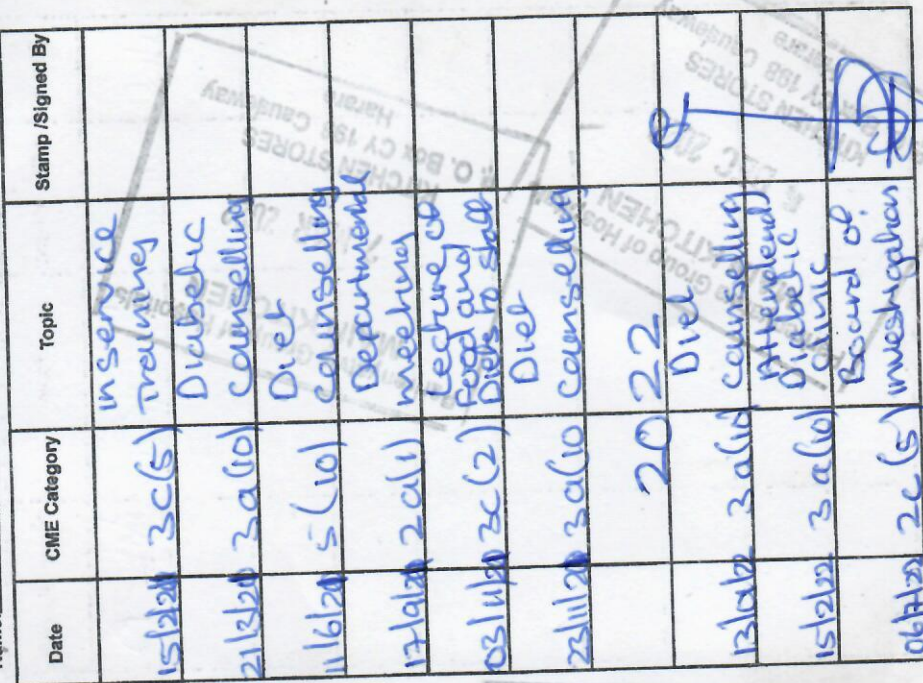 Date CME Category Topic Stamp /Signed By
15/2/20 3c(5) inservice
Training
21/3/20 3a(10) Diabetic
Counselling
11/6/20 5(10) Diet
Counselling
17/9/20 2a(1) Departmental
meeting
03/11/20 3c(2) Lecturing of
Food and
Diets to staff
23/11/20 3a(10 Diet
Counselling
2022
13/01/22 3a(10) Diet
Counselling
15/2/22 3a(10) Attended
Diabetic
clinic
06/7/22 2c(5) Board of
investigation
KITCHEN STORES
P. O. Box CY 198 Causeway
Harare
KITCHEN
Group of Hospitals
KITCHEN STORES
CY 198 Causeway
Harare